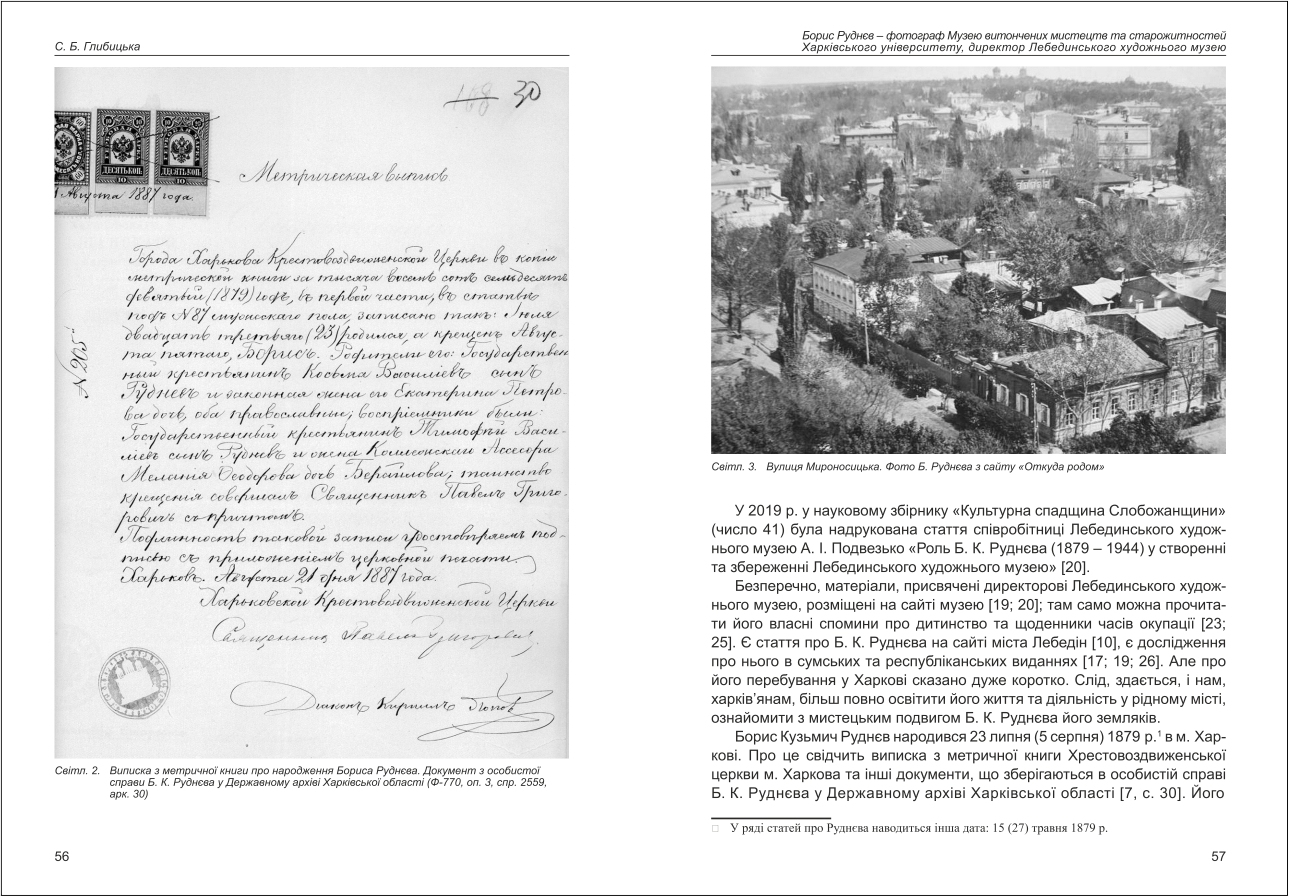 С. Б. Глибицька
168
30
ДЕСЯТЬ КОП.
10
ДЕСЯТЬ КОП.
10
Августа 1887 года.
Метрическая выпись
№ 205
Города Харькова Крестовоздвиженской Церкви въ копіи
метрической книги за тысяча восемь сотъ семьдесятъ
девятый (1879) годъ, въ первой части, въ статьѣ
подъ № 87 мужескаго пола, записано такъ: Іюля
двадцать третьяго (23) родился, а крещенъ Авгус-
та пятаго, Борисъ. Родители его: Государствен
ный крестьянинъ Косьма Василіевъ сынъ
Рудневъ и законная жена его Екатерина Петро-
ва дочь, оба православные; воспріемники были:
Государственный крестьянинъ Тимофѣй Васи-
ліевъ сынъ Рудневъ и жена Коллежскаго Ассесора
Меланія Ѳеодорова дочь таинство
крещенія совершалъ Священникъ Павелъ Григо-
ровичъ съ причтомъ.
Подлинность таковой записи удостовѣряемъ под-
писью съ приложеніемъ церковной печати.
Харьковъ. Августа 21 дня 1887 года.
Харьковской Крестовоздвиженской Церкви
Священникъ Павелъ Григоровичъ
Діаконъ Кириллъ Поповъ
Світл. 2. Виписка з метричної книги про народження Бориса Руднєва. Документ з особистої
справи Б. К. Руднєва у Державному архіві Харківської області (Ф-770, оп. 3, спр. 2559,
арк. 30)
56
Борис Руднєв – фотограф Музею витончених мистецтв та старожитностей
Харківського університету, директор Лебединського художнього музею
Світл. 3. Вулиця Мироносицька. Фото Б. Руднєва з сайту «Откуда родом»
У 2019 р. у науковому збірнику «Культурна спадщина Слобожанщини»
(число 41) була надрукована стаття співробітниці Лебединського худож-
нього музею А. І. Подвезько «Роль Б. К. Руднєва (1879 – 1944) у створенні
та збереженні Лебединського художнього музею» [20].
Безперечно, матеріали, присвячені директорові Лебединського худож-
нього музею, розміщені на сайті музею [19; 20]; там само можна прочита-
ти його власні спомини про дитинство та щоденники часів окупації [23;
25]. Є стаття про Б. К. Руднєва на сайті міста Лебедін [10], є дослідження
про нього в сумських та республіканських виданнях [17; 19; 26]. Але про
його перебування у Харкові сказано дуже коротко. Слід, здається, і нам,
харків’янам, більш повно освітити його життя та діяльність у рідному місті,
ознайомити з мистецьким подвигом Б. К. Руднєва його земляків.
Борис Кузьмич Руднєв народився 23 липня (5 серпня) 1879 р.¹ в м. Хар-
кові. Про це свідчить виписка з метричної книги Хрестовоздвиженської
церкви м. Харкова та інші документи, що зберігаються в особистій справі
Б. К. Руднєва у Державному архіві Харківської області [7, с. 30]. Його
У ряді статей про Руднєва наводиться інша дата: 15 (27) травня 1879 р.
57